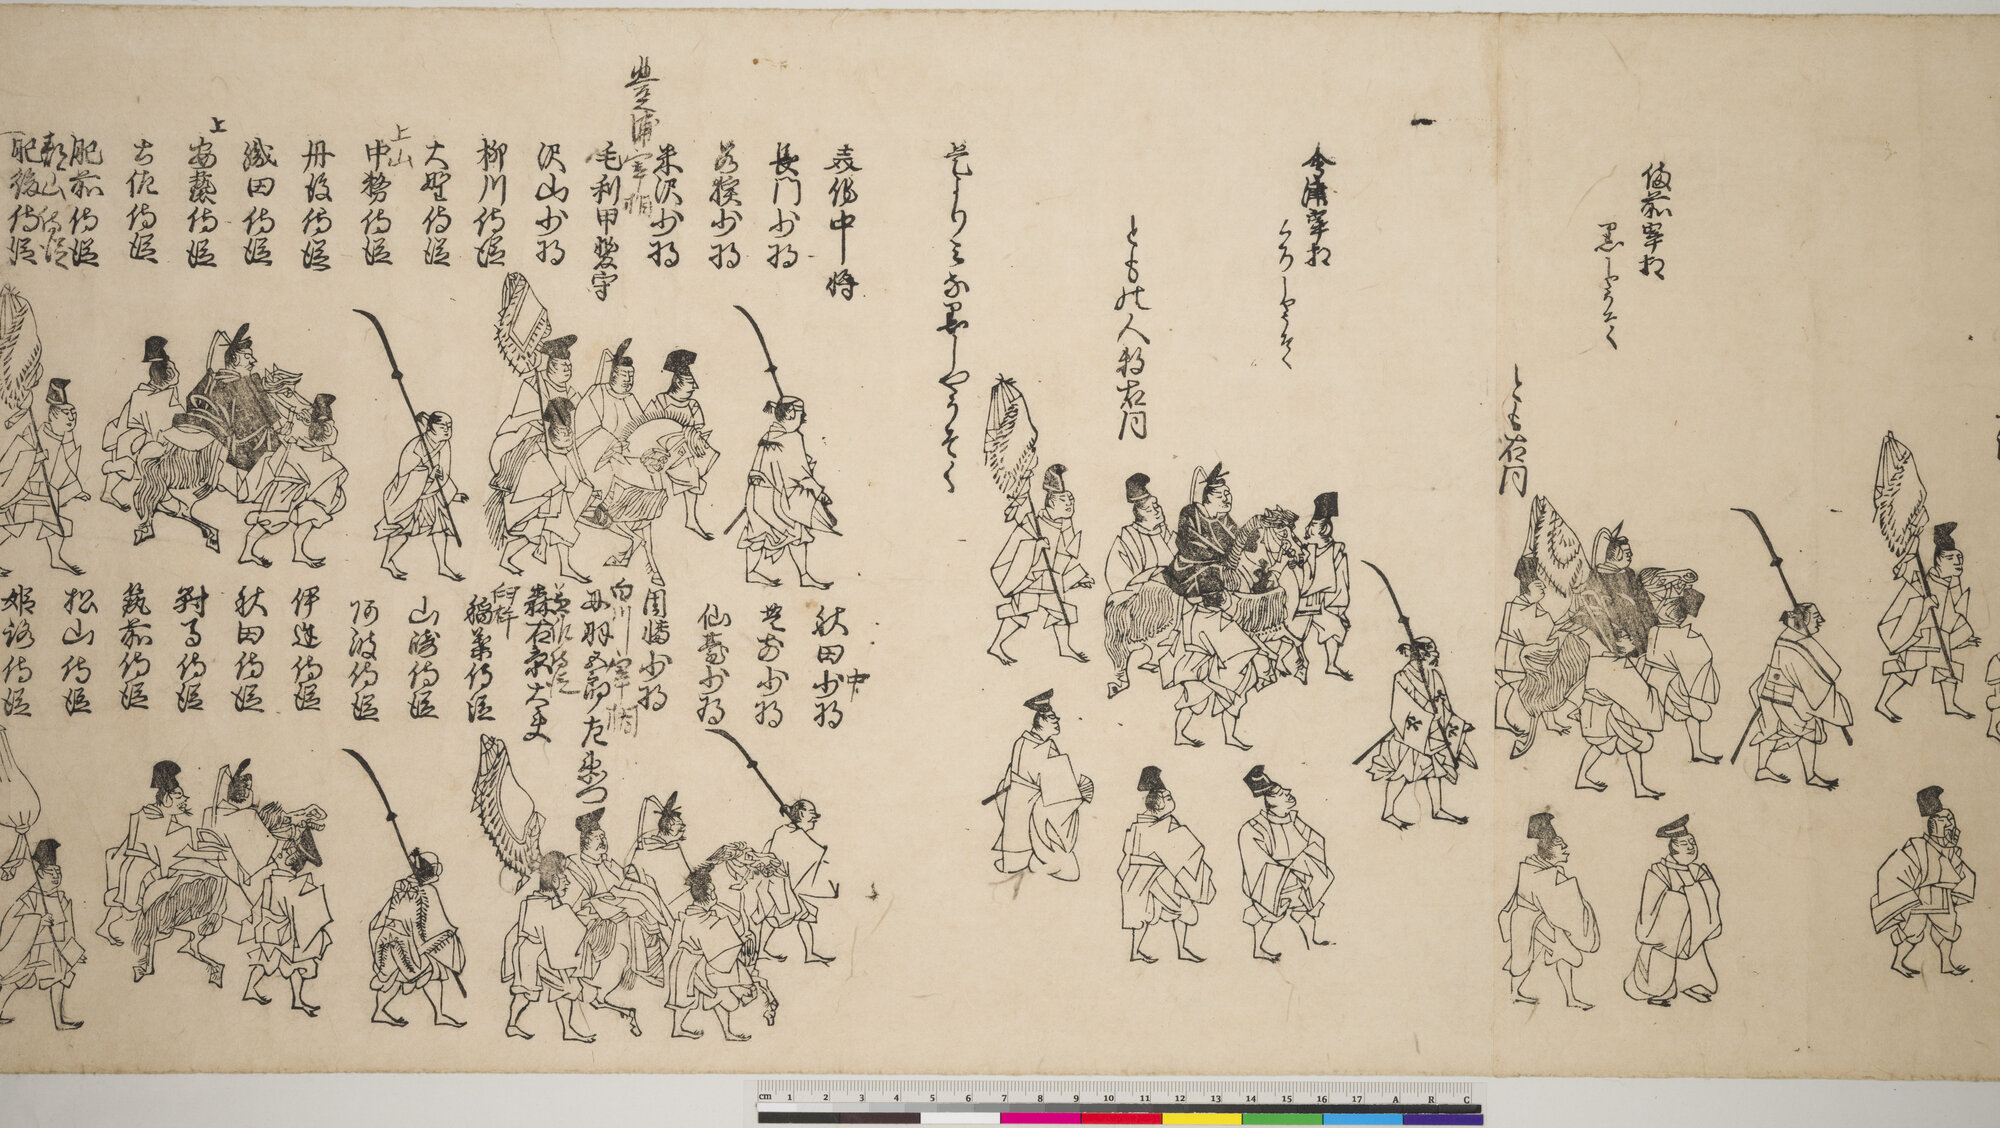 備前宰相
黒しやうそく
とも右同
一
くろしやうそく
とも之人数右同
是よりミな黒しやうそく
長門少将
若狭少将
米沢少将
豊浦宰相
毛利甲斐守
沢山少将
柳川侍従
大野侍従
上山
中務侍従
丹後侍従
織田侍従
上
安藝侍従
土佐侍従
肥前侍従
郡山侍従
肥後侍従
中
秋田少将
仙臺少将
白川宰相
丹羽五郎左衛門
森右京大夫
臼杵
稲葉侍従
山崎侍従
阿波侍従
伊達侍従
秋田侍従
對馬侍従
筑前侍従
松山侍従
姫路侍従
cm 1 2 3 4 5 6 7 8 9 10 11 12 13 14 15 16 17 A R C